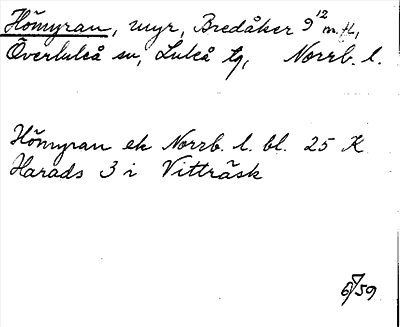 Hömyran, myr, Bredåker 9¹² m. fl.,
Överluleå sn, Luleå tg, Norrb. l.
Hömyran ek Norrb. l. bl. 25 K
Harads 3 i Vitträsk